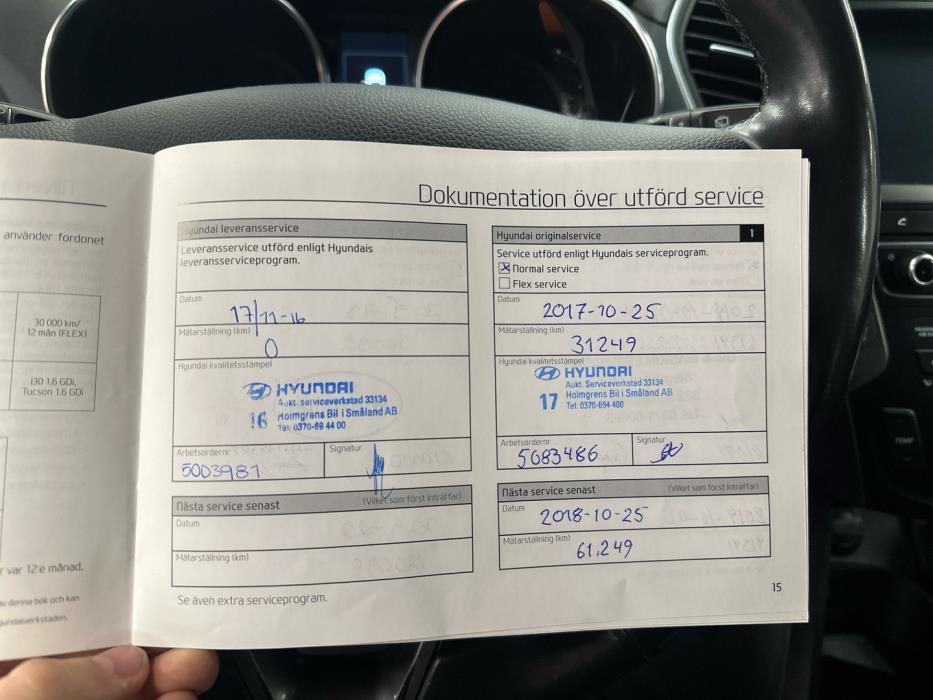 Dokumentation över utförd service
använder fordonet
30 000 km/
12 mån (FLEX)
i30 1.6 GDi,
Tucson 1.6 GDi
r var 12:e månad,
av denna bok och kan
yundaiverkstaden.
Hyundai leveransservice
Leveransservice utförd enligt Hyundais
leveransserviceprogram.
Datum
17/11-16
Mätarställning (km)
0
Hyundai kvalitetsstämpel
HYUNDAI
Aukt. Serviceverkstad 33134
16 Holmgrens Bil i Småland AB
Tel: 0370-69 44 00
Arbetsordernr
5003981
Signatur
Nästa service senast (Vilket som först inträffar)
Datum
Mätarställning (km)
Se även extra serviceprogram.
Hyundai originalservice 1
Service utförd enligt Hyundais serviceprogram.
Normal service
Flex service
Datum
2017-10-25
Mätarställning (km)
31249
Hyundai kvalitetsstämpel
HYUNDAI
Aukt. Serviceverkstad 33134
17 Holmgrens Bil i Småland AB
Tel: 0370-694 400
Arbetsordernr
5083486
Signatur
Nästa service senast (Vilket som först inträffar)
Datum
2018-10-25
Mätarställning (km)
61.249
15
TEMP